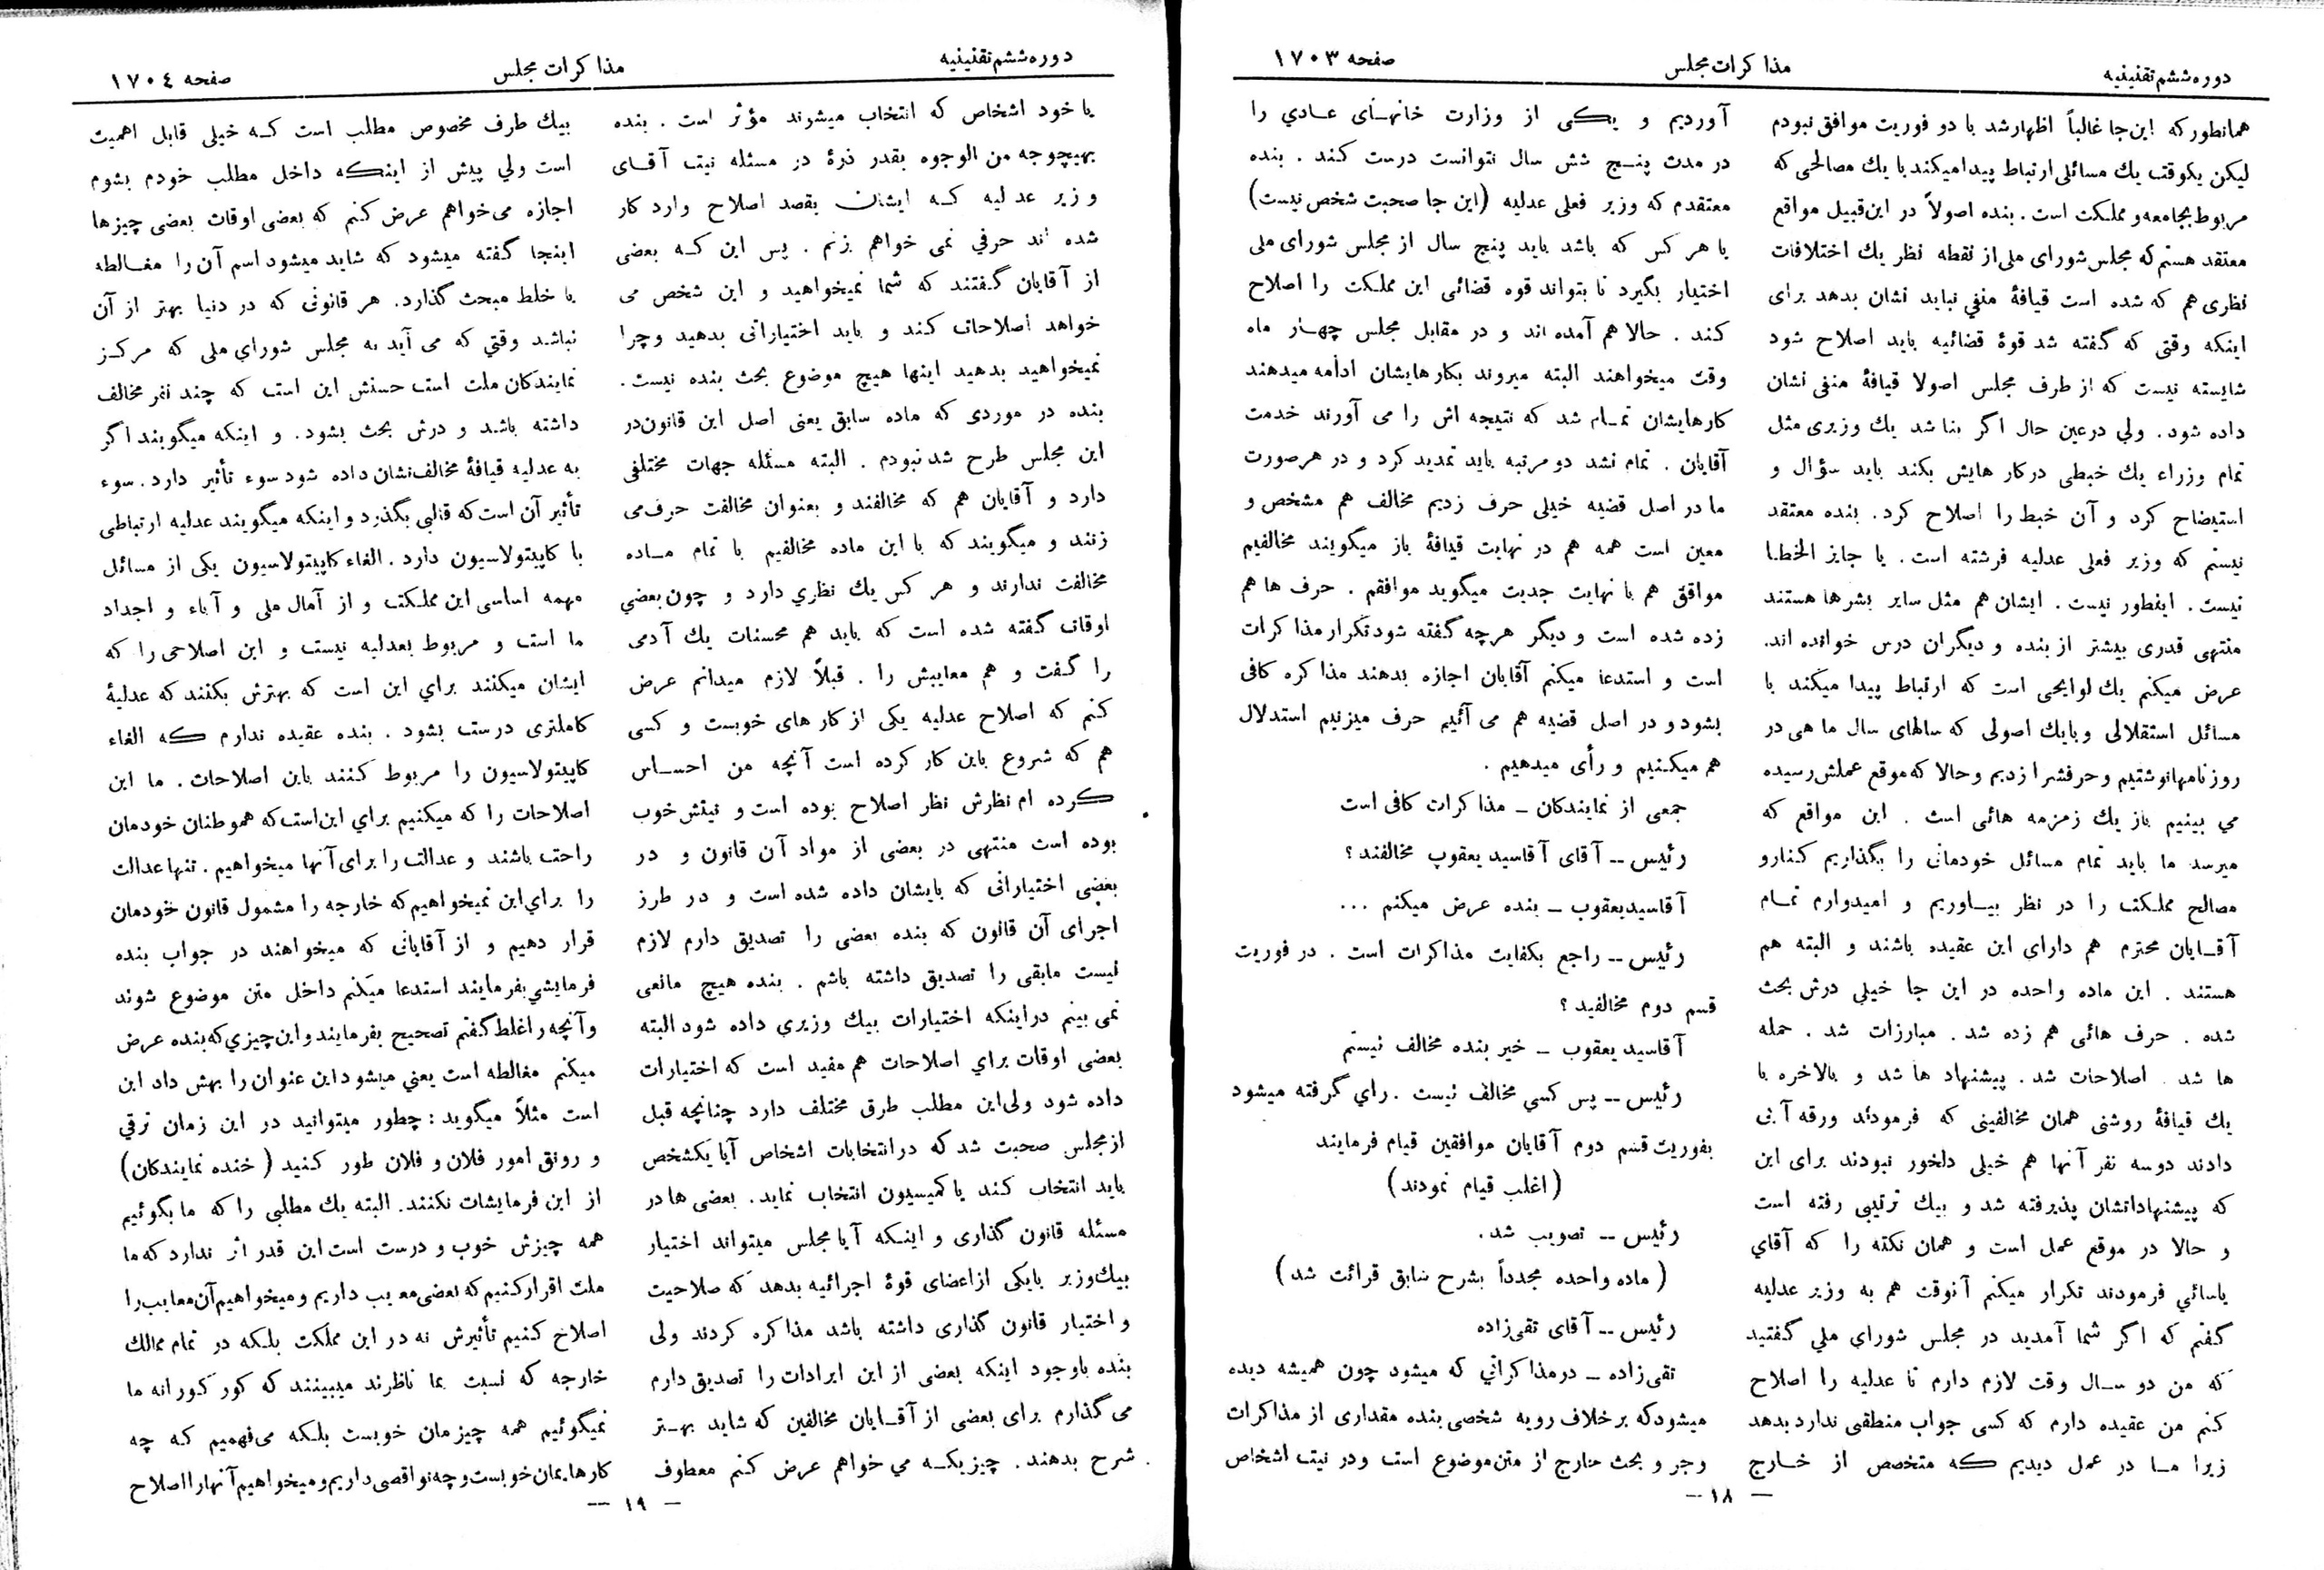 دوره ششم تقنینیه
مذاکرات مجلس
صفحه ۱۷۰۳
همانطور که این‌جا غالباً اظهار شد با دو فوریت موافق نبودم
لیکن یکوقت یك مسائلی ارتباط پیدا میکند با یك مصالحی که
مربوط بجامعه و مملکت است . بنده اصولاً در این قبیل مواقع
معتقد هستم که مجلس شورای ملی از نقطه نظر یك اختلافات
نظری هم که شده است قیافهٔ منفی نباید نشان بدهد برای
اینکه وقتی که گفته شد قوهٔ قضائیه باید اصلاح شود
شایسته نیست که از طرف مجلس اصولا قیافهٔ منفی نشان
داده شود . ولی درعین حال اگر بنا شد یك وزیری مثل
تمام وزراء یك خبطی در کار هایش بکند باید سؤال و
استیضاح کرد و آن خبط را اصلاح کرد . بنده معتقد
نیستم که وزیر فعلی عدلیه فرشته است . یا جایز الخطا
نیست . اینطور نیست . ایشان هم مثل سایر بشرها هستند
منتهی قدری بیشتر از بنده و دیگران درس خوانده اند.
عرض میکنم یك لوایحی است که ارتباط پیدا میکند با
مسائل استقلالی و بایك اصولی که سالهای سال ما هی در
روزنامها نوشتیم و حرفشرا زدیم و حالا که موقع عملش رسیده
می بینیم باز یك زمزمه هائی است . این مواقع که
میرسد ما باید تمام مسائل خودمانی را بگذاریم کنار و
مصالح مملکت را در نظر بیاوریم و امیدوارم تمام
آقایان محترم هم دارای این عقیده باشند و البته هم
هستند . این ماده واحده در این جا خیلی درش بحث
شده . حرف هائی هم زده شد . مبارزات شد . حمله
ها شد . اصلاحات شد . پیشنهاد ها شد و بالاخره با
یك قیافهٔ روشنی همان مخالفینی که فرمودند ورقه آبی
دادند دوسه نفر آنها هم خیلی دلخور نبودند برای این
که پیشنهاداتشان پذیرفته شد و بیك ترتیبی رفته است
و حالا در موقع عمل است و همان نکته را که آقای
یاسائی فرمودند تکرار میکنم آنوقت هم به وزیر عدلیه
گفتم که اگر شما آمدید در مجلس شورای ملی گفتید
که من دو سال وقت لازم دارم تا عدلیه را اصلاح
کنم من عقیده دارم که کسی جواب منطقی ندارد بدهد
زیرا ما در عمل دیدیم که متخصص از خارج
آوردیم و یکی از وزارت خانهای عادی را
در مدت پنج شش سال نتوانست درست کند . بنده
معتقدم که وزیر فعلی عدلیه (این جا صحبت شخص نیست)
یا هر کس که باشد باید پنج سال از مجلس شورای ملی
اختیار بگیرد تا بتواند قوه قضائی این مملکت را اصلاح
کند . حالا هم آمده اند و در مقابل مجلس چهار ماه
وقت میخواهند البته میروند بکارهایشان ادامه میدهند
کارهایشان تمام شد که نتیجه اش را می آورند خدمت
آقایان . تمام نشد دو مرتبه باید تمدید کرد و در هرصورت
ما در اصل قضیه خیلی حرف زدیم مخالف هم مشخص و
معین است همه هم در نهایت قیافهٔ باز میگویند مخالفیم
موافق هم با نهایت جدیت میگوید موافقم . حرف ها هم
زده شده است و دیگر هرچه گفته شود تکرار مذاکرات
است و استدعا میکنم آقایان اجازه بدهند مذاکره کافی
بشود و در اصل قضیه هم می آئیم حرف میزنیم استدلال
هم میکنیم و رأی میدهیم .
جمعی از نمایندکان ــ مذاکرات کافی است
رئیس ــ آقای آقاسید یعقوب مخالفند ؟
آقاسید یعقوب ــ بنده عرض میکنم ...
رئیس ــ راجع بکفایت مذاکرات است . در فوریت
قسم دوم مخالفید ؟
آقاسید یعقوب ــ خیر بنده مخالف نیستم
رئیس ــ پس کسی مخالف نیست . رای گرفته میشود
بفوریت قسم دوم آقایان موافقین قیام فرمایند
(اغلب قیام نمودند)
رئیس ــ تصویب شد .
( ماده واحده مجدداً بشرح سابق قرائت شد )
رئیس ــ آقای تقی‌زاده
تقی‌زاده ــ در مذاکراتی که میشود چون همیشه دیده
میشود که برخلاف رویه شخصی بنده مقداری از مذاکرات
وجر و بحث خارج از متن موضوع است و در نیت اشخاص
— ۱۸ —
دوره ششم تقنینیه
مذاکرات مجلس
صفحه ۱۷۰٤
یا خود اشخاص که انتخاب میشوند مؤثر است . بنده
بهیچوجه من الوجوه بقدر ذرهٔ در مسئله نیت آقای
وزیر عدلیه که ایشان بقصد اصلاح وارد کار
شده اند حرفی نمی خواهم بزنم . پس این که بعضی
از آقایان گفتند که شما نمیخواهید و این شخص می
خواهد اصلاحات کند و باید اختیاراتی بدهید و چرا
نمیخواهید بدهید اینها هیچ موضوع بحث بنده نیست .
بنده در موردی که ماده سابق یعنی اصل این قانون در
این مجلس طرح شد نبودم . البته مسئله جهات مختلفی
دارد و آقایان هم که مخالفند و بعنوان مخالفت حرف می
زنند و میگویند که با این ماده مخالفیم با تمام ماده
مخالفت ندارند و هر کس یك نظری دارد و چون بعضی
اوقات گفته شده است که باید هم محسنات یك آدمی
را گفت و هم معایبش را . قبلاً لازم میدانم عرض
کنم که اصلاح عدلیه یکی از کار های خوبست و کسی
هم که شروع باین کار کرده است آنچه من احساس
کرده ام نظرش نظر اصلاح بوده است و نیتش خوب
بوده است منتهی در بعضی از مواد آن قانون و در
بعضی اختیاراتی که بایشان داده شده است و در طرز
اجرای آن قانون که بنده بعضی را تصدیق دارم لازم
نیست مابقی را تصدیق داشته باشم . بنده هیچ مانعی
نمی بینم در اینکه اختیارات بیك وزیری داده شود البته
بعضی اوقات برای اصلاحات هم مفید است که اختیارات
داده شود ولی این مطلب طرق مختلف دارد چنانچه قبل
از مجلس صحبت شد که در انتخابات اشخاص آیا یکشخص
باید انتخاب کند یا کمیسیون انتخاب نماید . بعضی ها در
مسئله قانون گذاری و اینکه آیا مجلس میتواند اختیار
بیك وزیر یا یکی از اعضای قوهٔ اجرائیه بدهد که صلاحیت
و اختیار قانون گذاری داشته باشد مذاکره کردند ولی
بنده باوجود اینکه بعضی از این ایرادات را تصدیق دارم
می گذارم برای بعضی از آقایان مخالفین که شاید بهتر
شرح بدهند . چیزیکه می خواهم عرض کنم معطوف
بیك طرف مخصوص مطلب است که خیلی قابل اهمیت
است ولی پیش از اینکه داخل مطلب خودم بشوم
اجازه می‌خواهم عرض کنم که بعضی اوقات بعضی چیزها
اینجا گفته میشود که شاید میشود اسم آن را مغالطه
یا خلط مبحث گذارد . هر قانونی که در دنیا بهتر از آن
نباشد وقتی که می آید به مجلس شورای ملی که مرکز
نمایندکان ملت است حسنش این است که چند نفر مخالف
داشته باشد و درش بحث بشود . و اینکه میگویند اگر
به عدلیه قیافهٔ مخالف نشان داده شود سوء تأثیر دارد . سوء
تأثیر آن است که قالبی بگذرد و اینکه میگویند عدلیه ارتباطی
با کاپیتولاسیون دارد . الغاء کاپیتولاسیون یکی از مسائل
مهمه اساسی این مملکت و از آمال ملی و آباء و اجداد
ما است و مربوط بعدلیه نیست و این اصلاحی را که
ایشان میکنند برای این است که بهترش بکنند که عدلیهٔ
کاملتری درست بشود . بنده عقیده ندارم که الغاء
کاپیتولاسیون را مربوط کنند باین اصلاحات . ما این
اصلاحات را که میکنیم برای این است که هموطنان خودمان
راحت باشند و عدالت را برای آنها میخواهیم . تنها عدالت
را برای این نمیخواهیم که خارجه را مشمول قانون خودمان
قرار دهیم و از آقایانی که میخواهند در جواب بنده
فرمایشی بفرمایند استدعا میکنم داخل متن موضوع شوند
و آنچه را غلط گفتم تصحیح بفرمایند و این چیزی که بنده عرض
میکنم مغالطه است یعنی میشود این عنوان را بهش داد این
است مثلاً میگوید : چطور میتوانید در این زمان ترقی
و رونق امور فلان و فلان طور کنید ( خنده نمایندکان )
از این فرمایشات نکنند . البته یك مطلبی را که ما بگوئیم
همه چیزش خوب و درست است این قدر اثر ندارد که ما
ملت اقرار کنیم که بعضی معایب داریم و میخواهیم آن معایب را
اصلاح کنیم تأثیرش نه در این مملکت بلکه در تمام ممالك
خارجه که نسبت بما ناظرند میبینند که کور کورانه ما
نمیگوئیم همه چیزمان خوبست بلکه می‌فهمیم که چه
کارهایمان خوبست و چه نواقصی داریم و میخواهیم آنها را اصلاح
— ۱۹ —